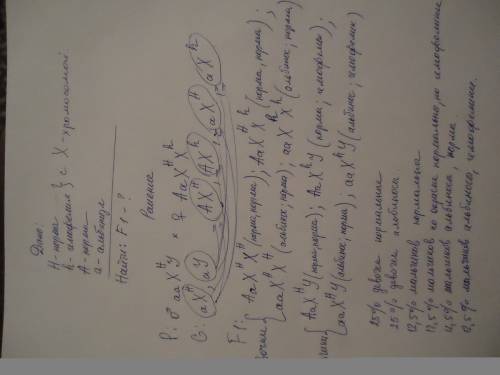 Дано:
H - норма
h - гемофилия } с X - хромосомой
A - норма
a - альбинизм
Найти: F1 - ?
Решение
P: ♂ aaXᴴY × ♀ AaXᴴXʰ
G: aXᴴ, aY AXᴴ, AXʰ, aXᴴ, aXʰ
F1:
AaXᴴXᴴ (норма, норма); AaXᴴXʰ (норма, норма);
aaXᴴXᴴ (альбинос; норма); aaXᴴXʰ (альбинос; норма)
AaXᴴY (норма; норма); AaXʰY (норма; гемофелик);
aaXᴴY (альбинос, норма); aaXʰY (альбинос; гемофелик)
25% девочки нормальные
25% девочки альбиносы
12,5% мальчиков нормальных
12,5% мальчиков с окрасом нормальных, но гемофелики
12,5% мальчиков альбиносов норма
12,5% мальчиков альбиносов, гемофелики.